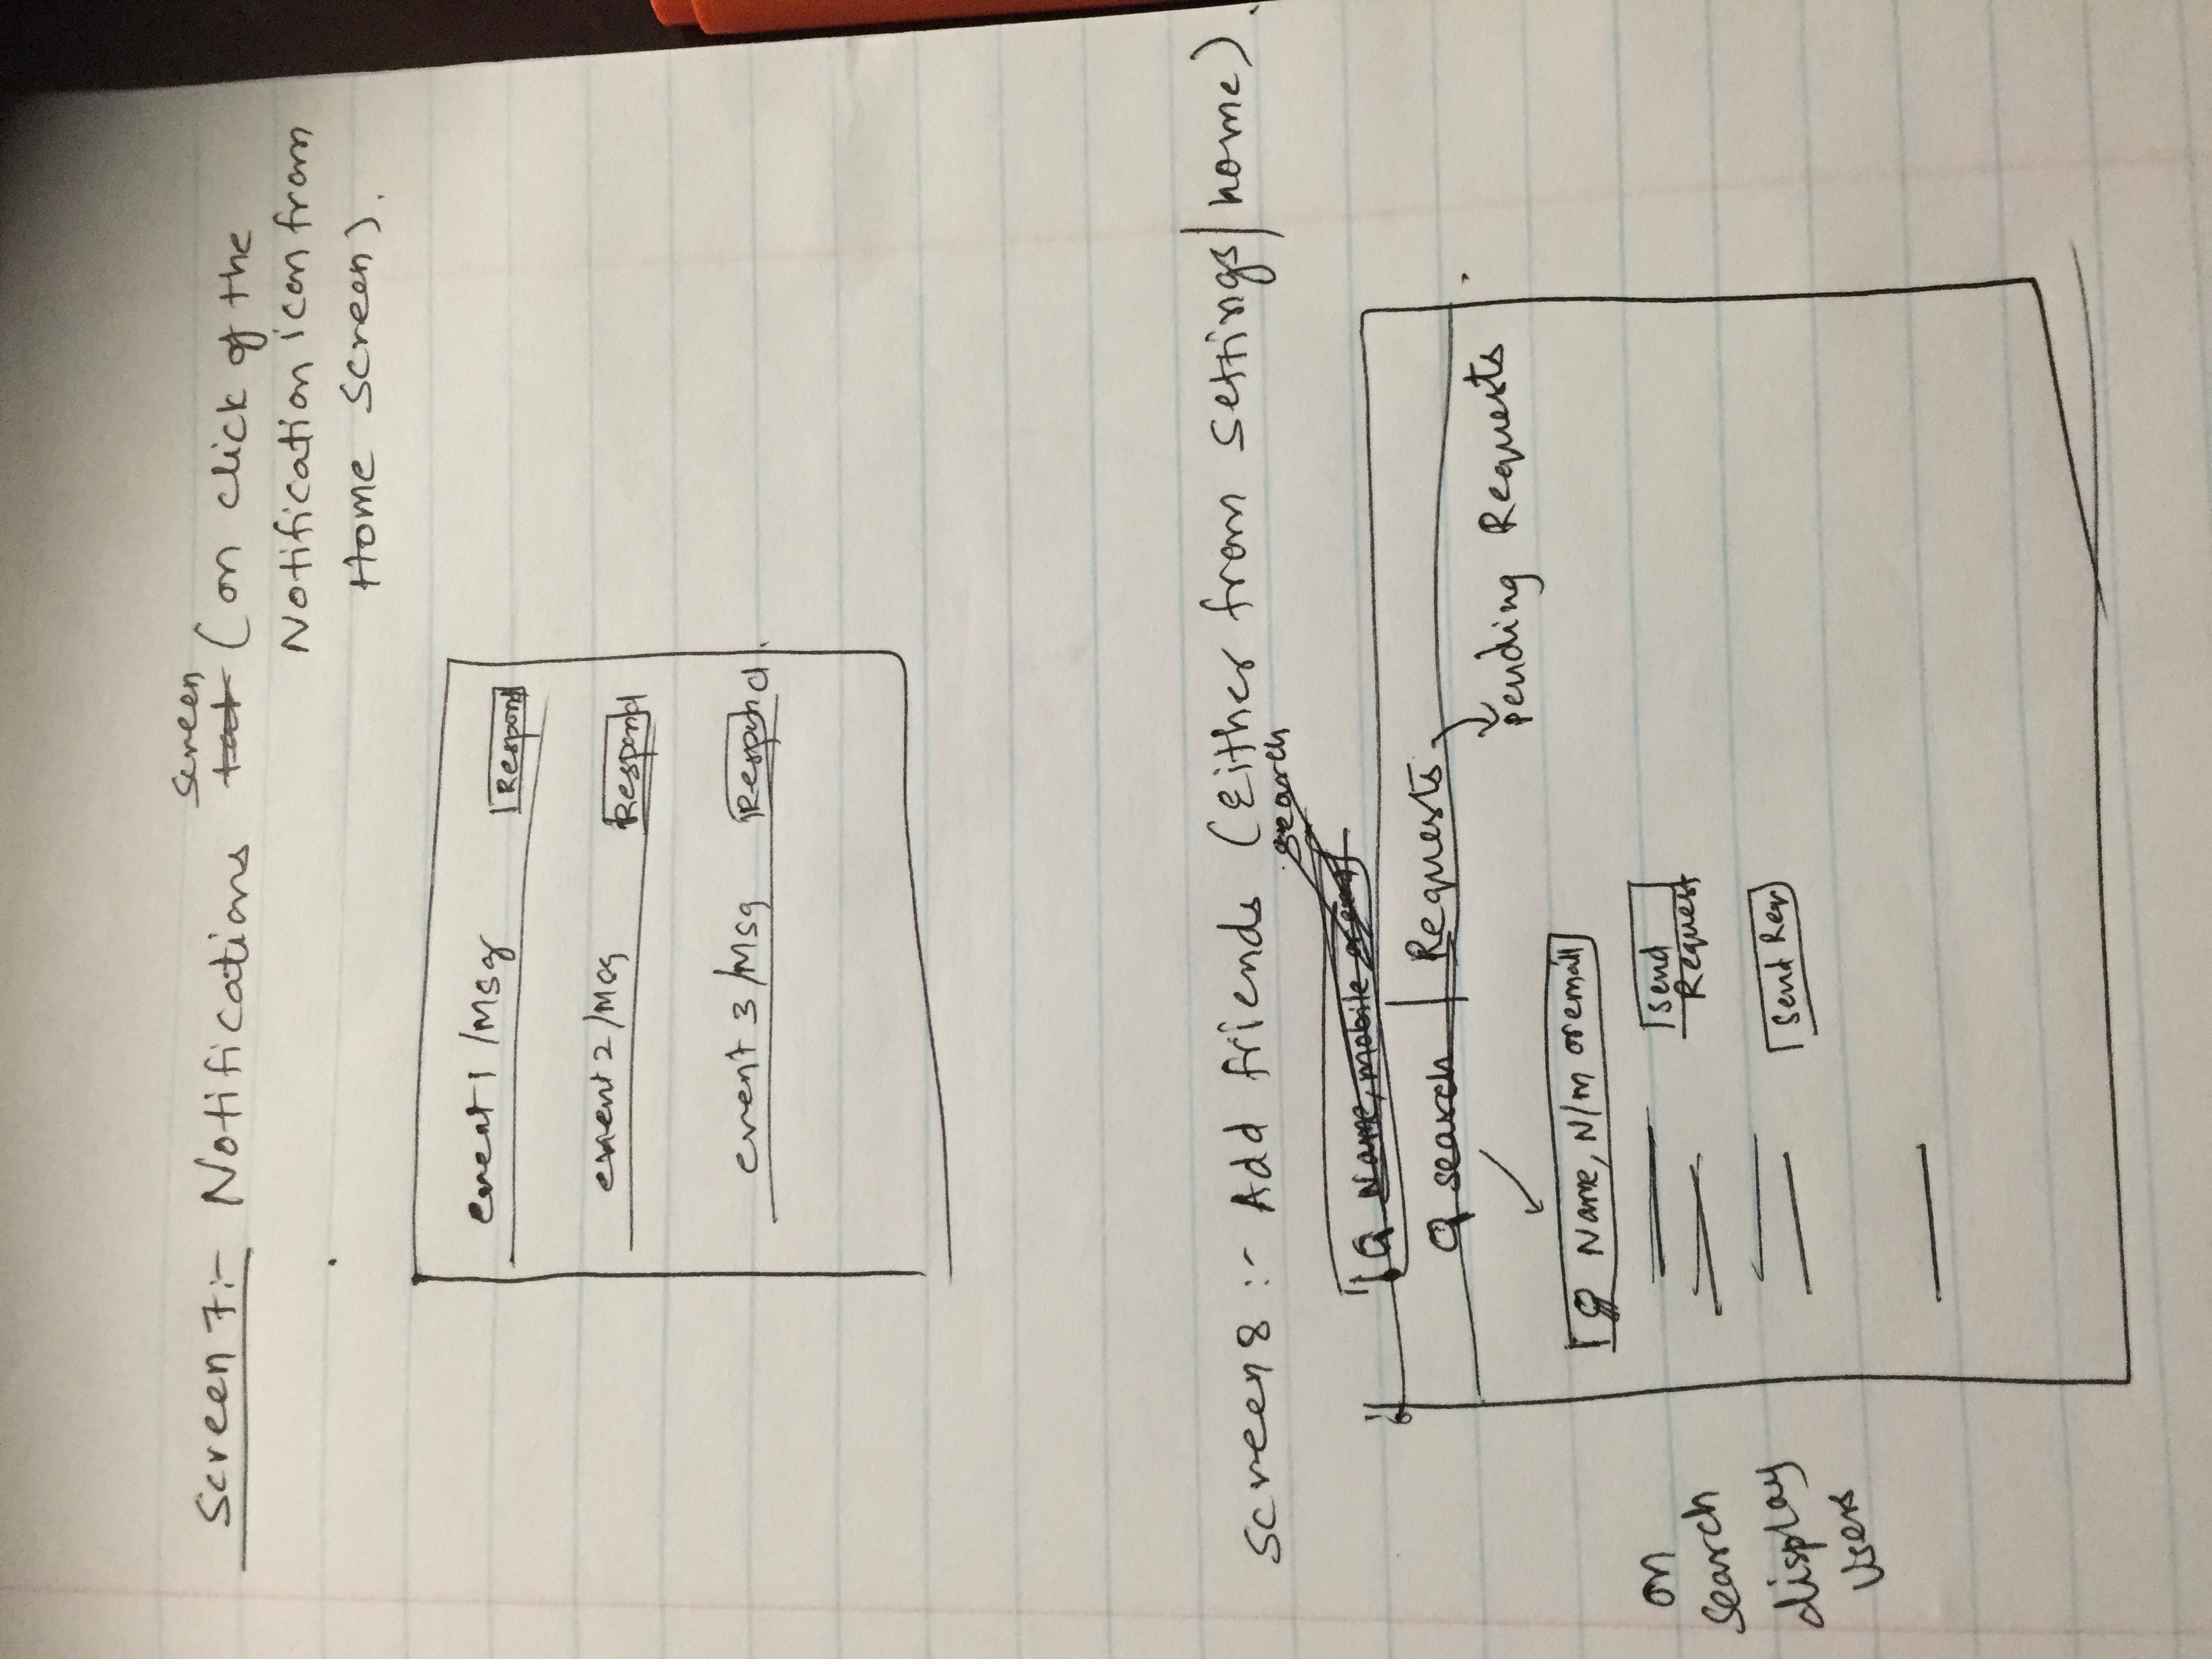 Screen 7:- Notifications screen (on click of the
Notification icon from
Home Screen).
event 1 /Msg Respond
event 2 /Msg Respond
event 3 /Msg Respond
Screen 8 :- Add friends (Either from Settings/home).
search
Name, mobile or email
search | Requests
Pending Requests
Name, N/m or email
Send
Request
Send Req
on
Search
display
Users